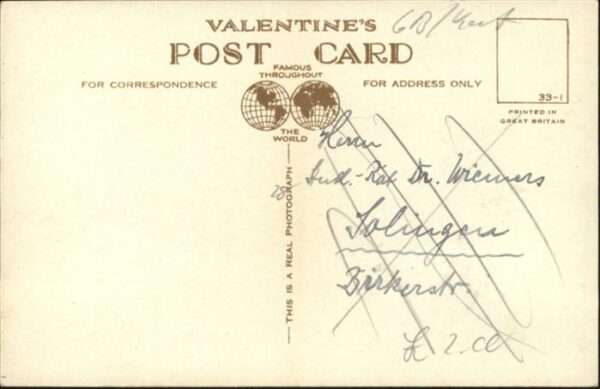 VALENTINE'S
GB/Kent
POST CARD
FAMOUS
THROUGHOUT
THE
WORLD
FOR CORRESPONDENCE
FOR ADDRESS ONLY
33-1
PRINTED IN
GREAT BRITAIN
THIS IS A REAL PHOTOGRAPH
Herrn
Dr. Wiemers
Solingen
Birkerstr.